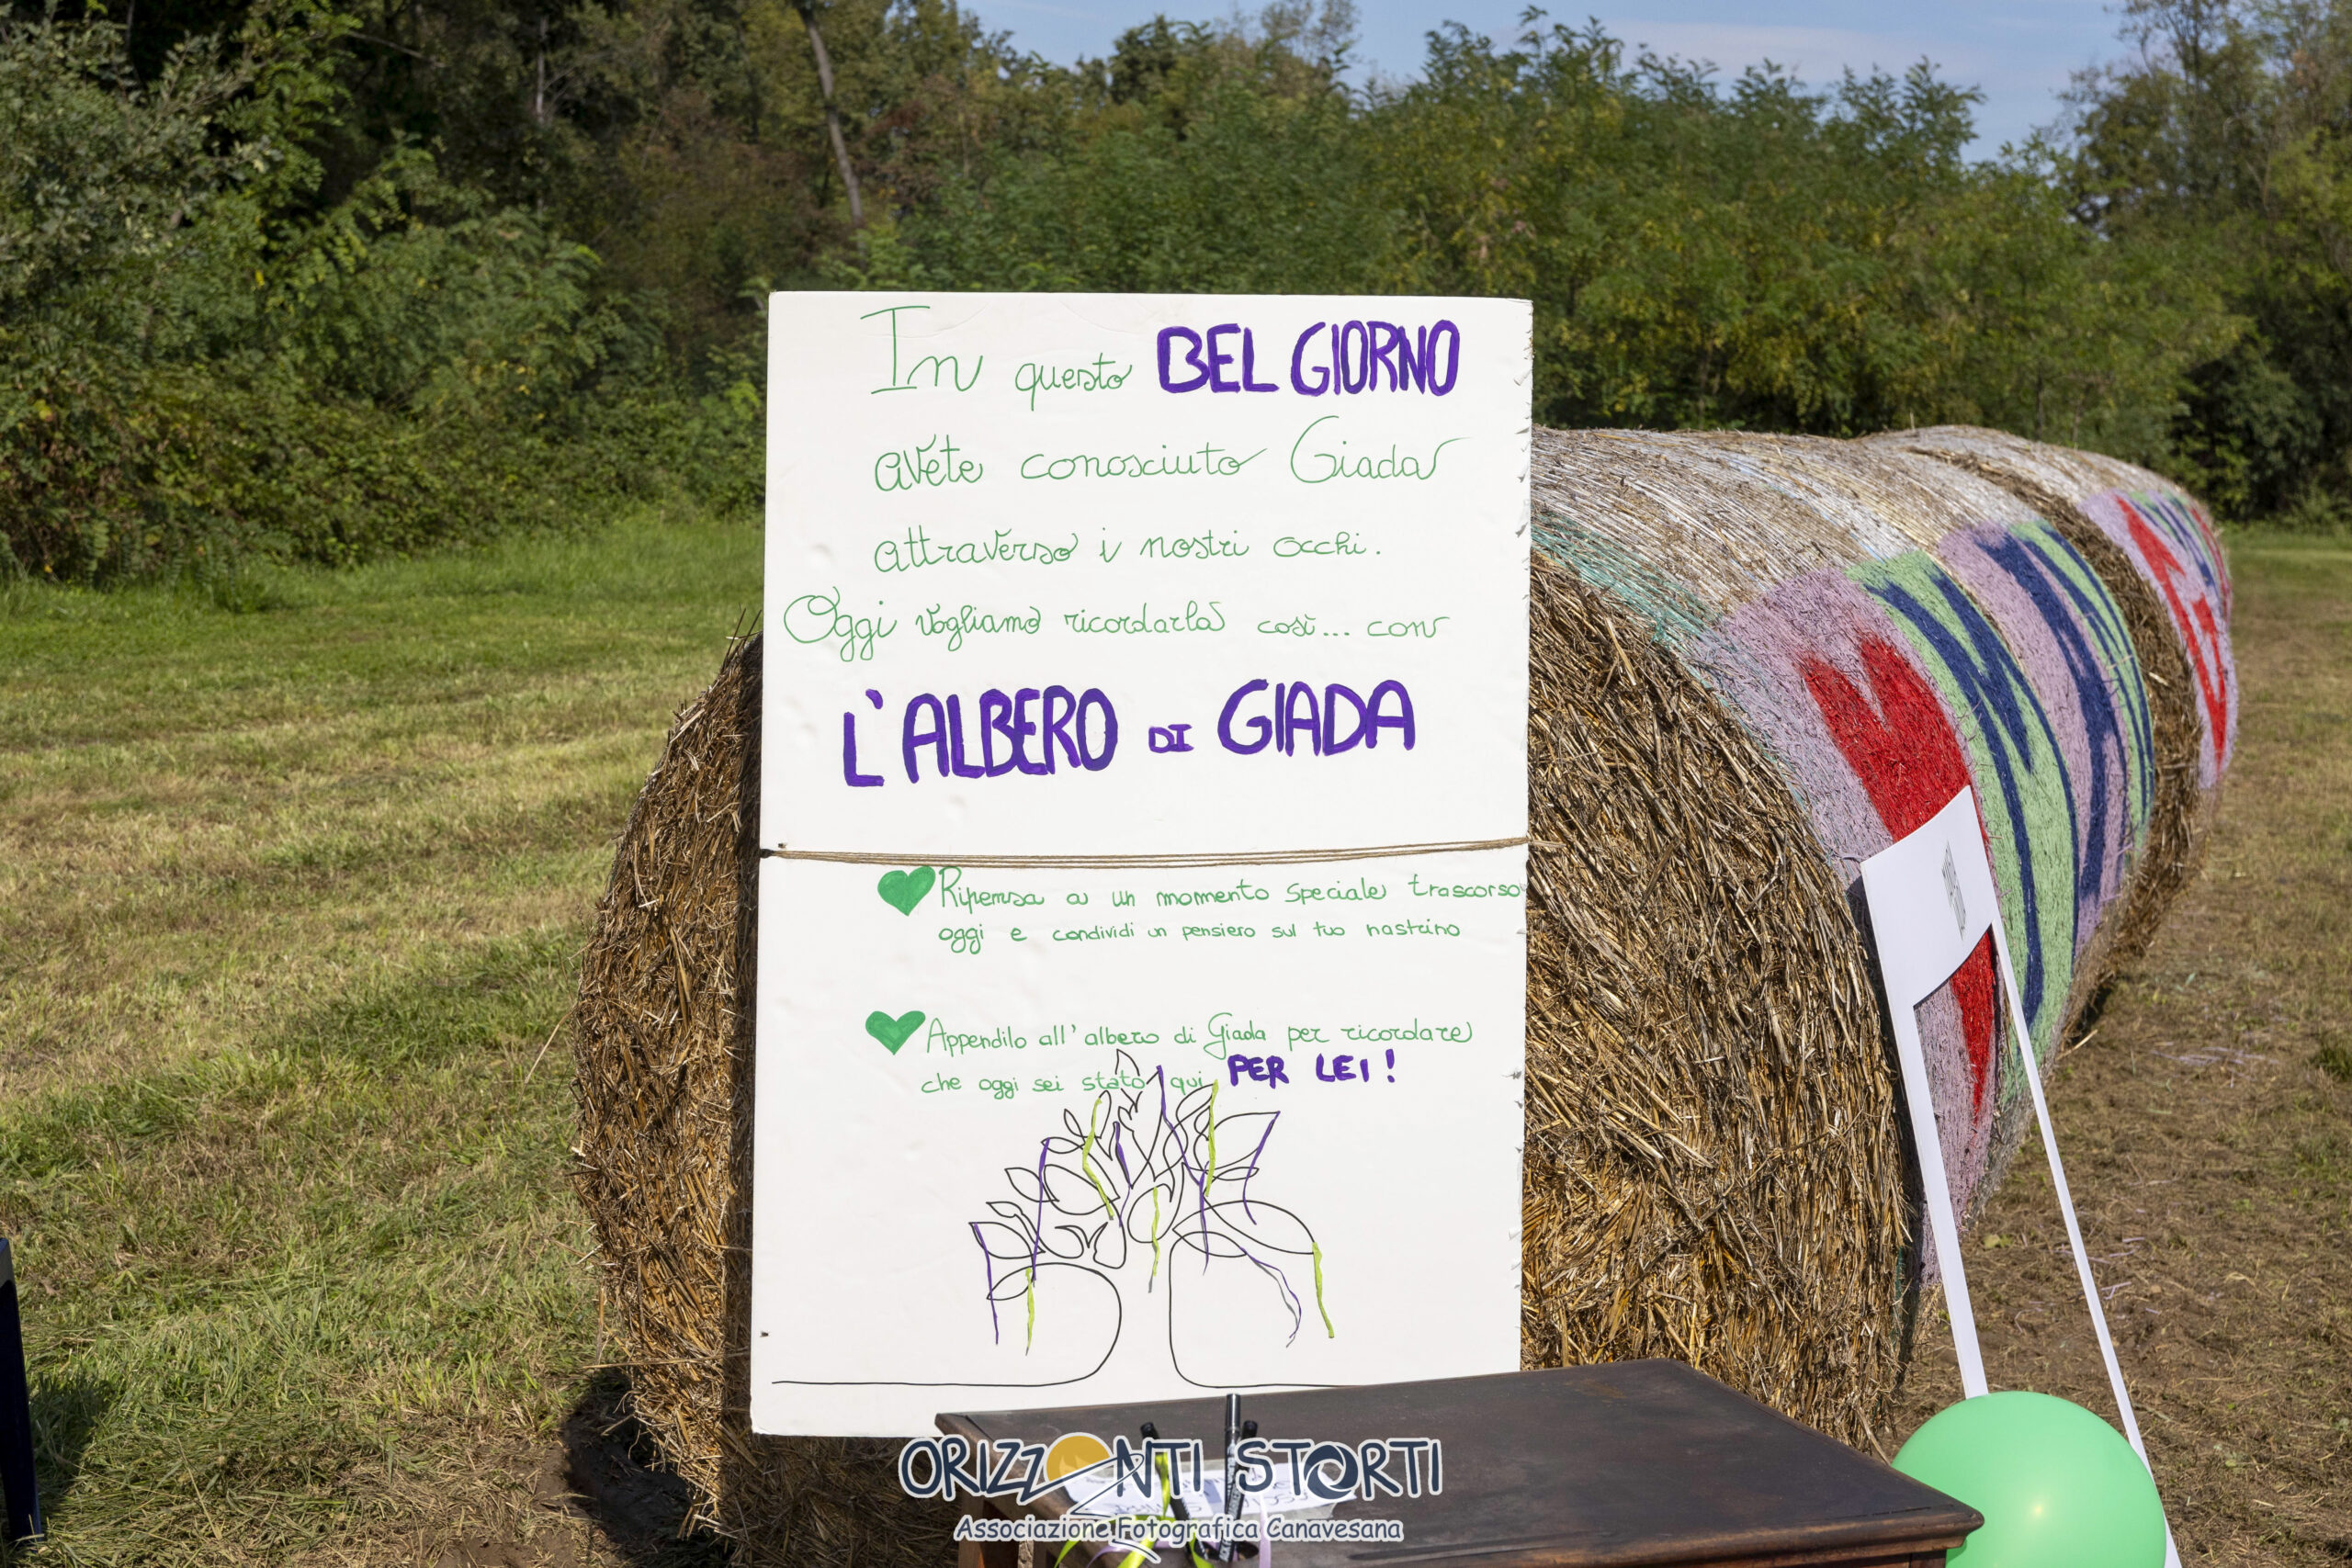 In questo BEL GIORNO
avete conosciuto Giada
attraverso i nostri occhi.
Oggi vogliamo ricordarla così... con
L'ALBERO DI GIADA
Ripensa a un momento speciale trascorso
oggi e condividi un pensiero sul tuo nastrino
Appendilo all'albero di Giada per ricordare
che oggi sei stato qui PER LEI!
ORIZZONTI STORTI
Associazione Fotografica Canavesana